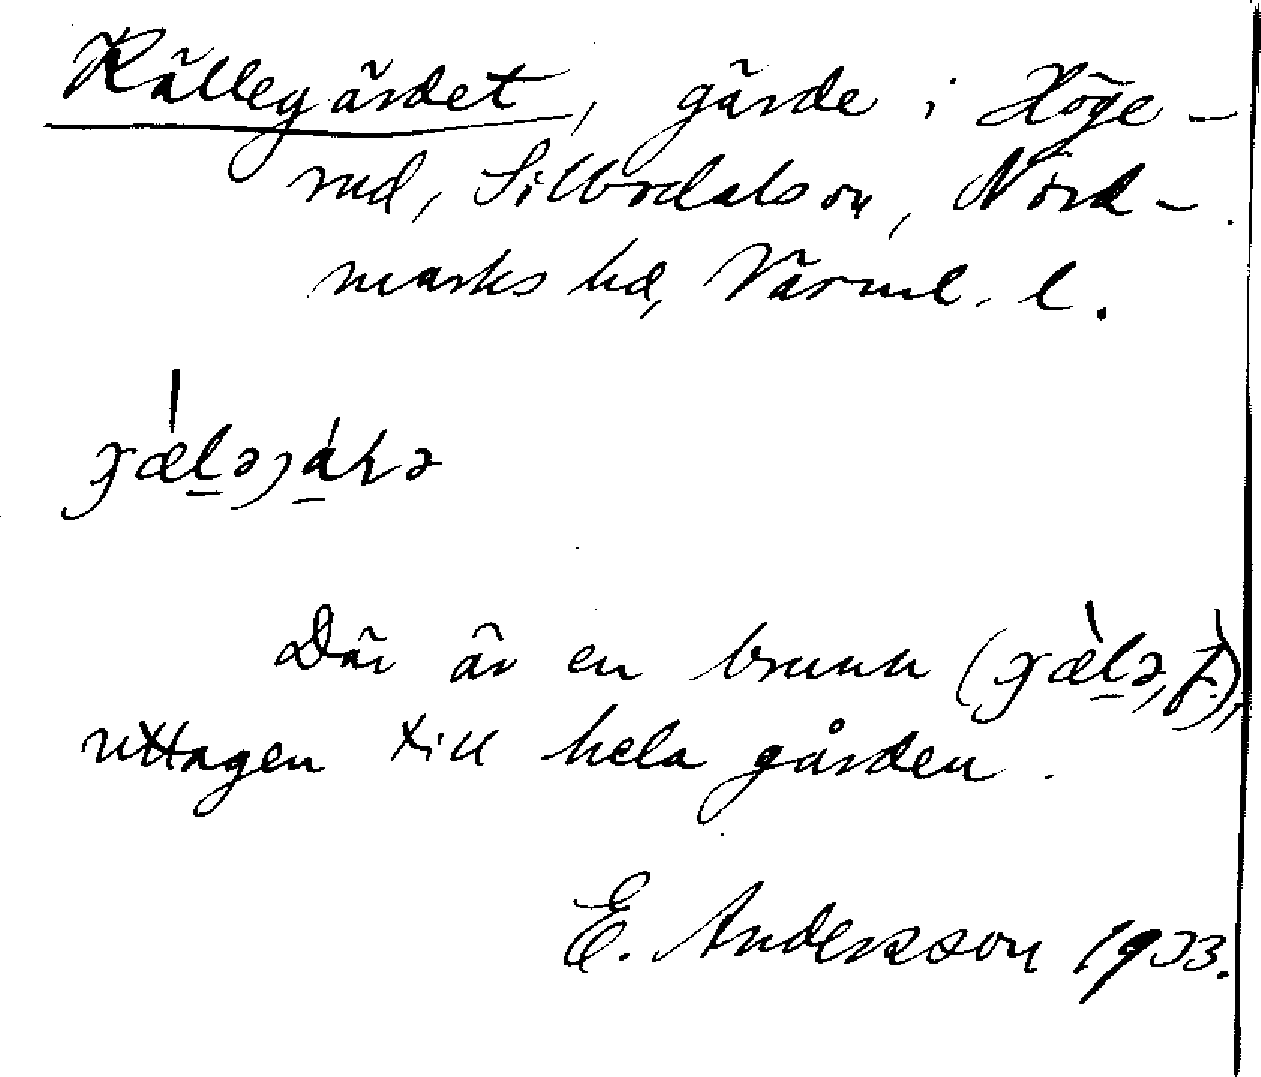 Källegärdet, gärde i Höge-
rud, Silbodalssn, Nord-
marks hd, Värml. l.
Där är en brunn
uttagen till hela gården.
E. Andersson 1933.